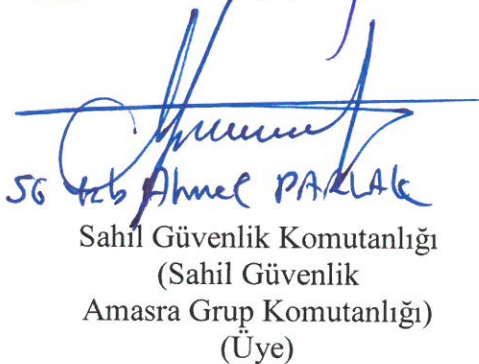 SG Ahmet PARLAK
Sahil Güvenlik Komutanlığı
(Sahil Güvenlik
Amasra Grup Komutanlığı)
(Üye)